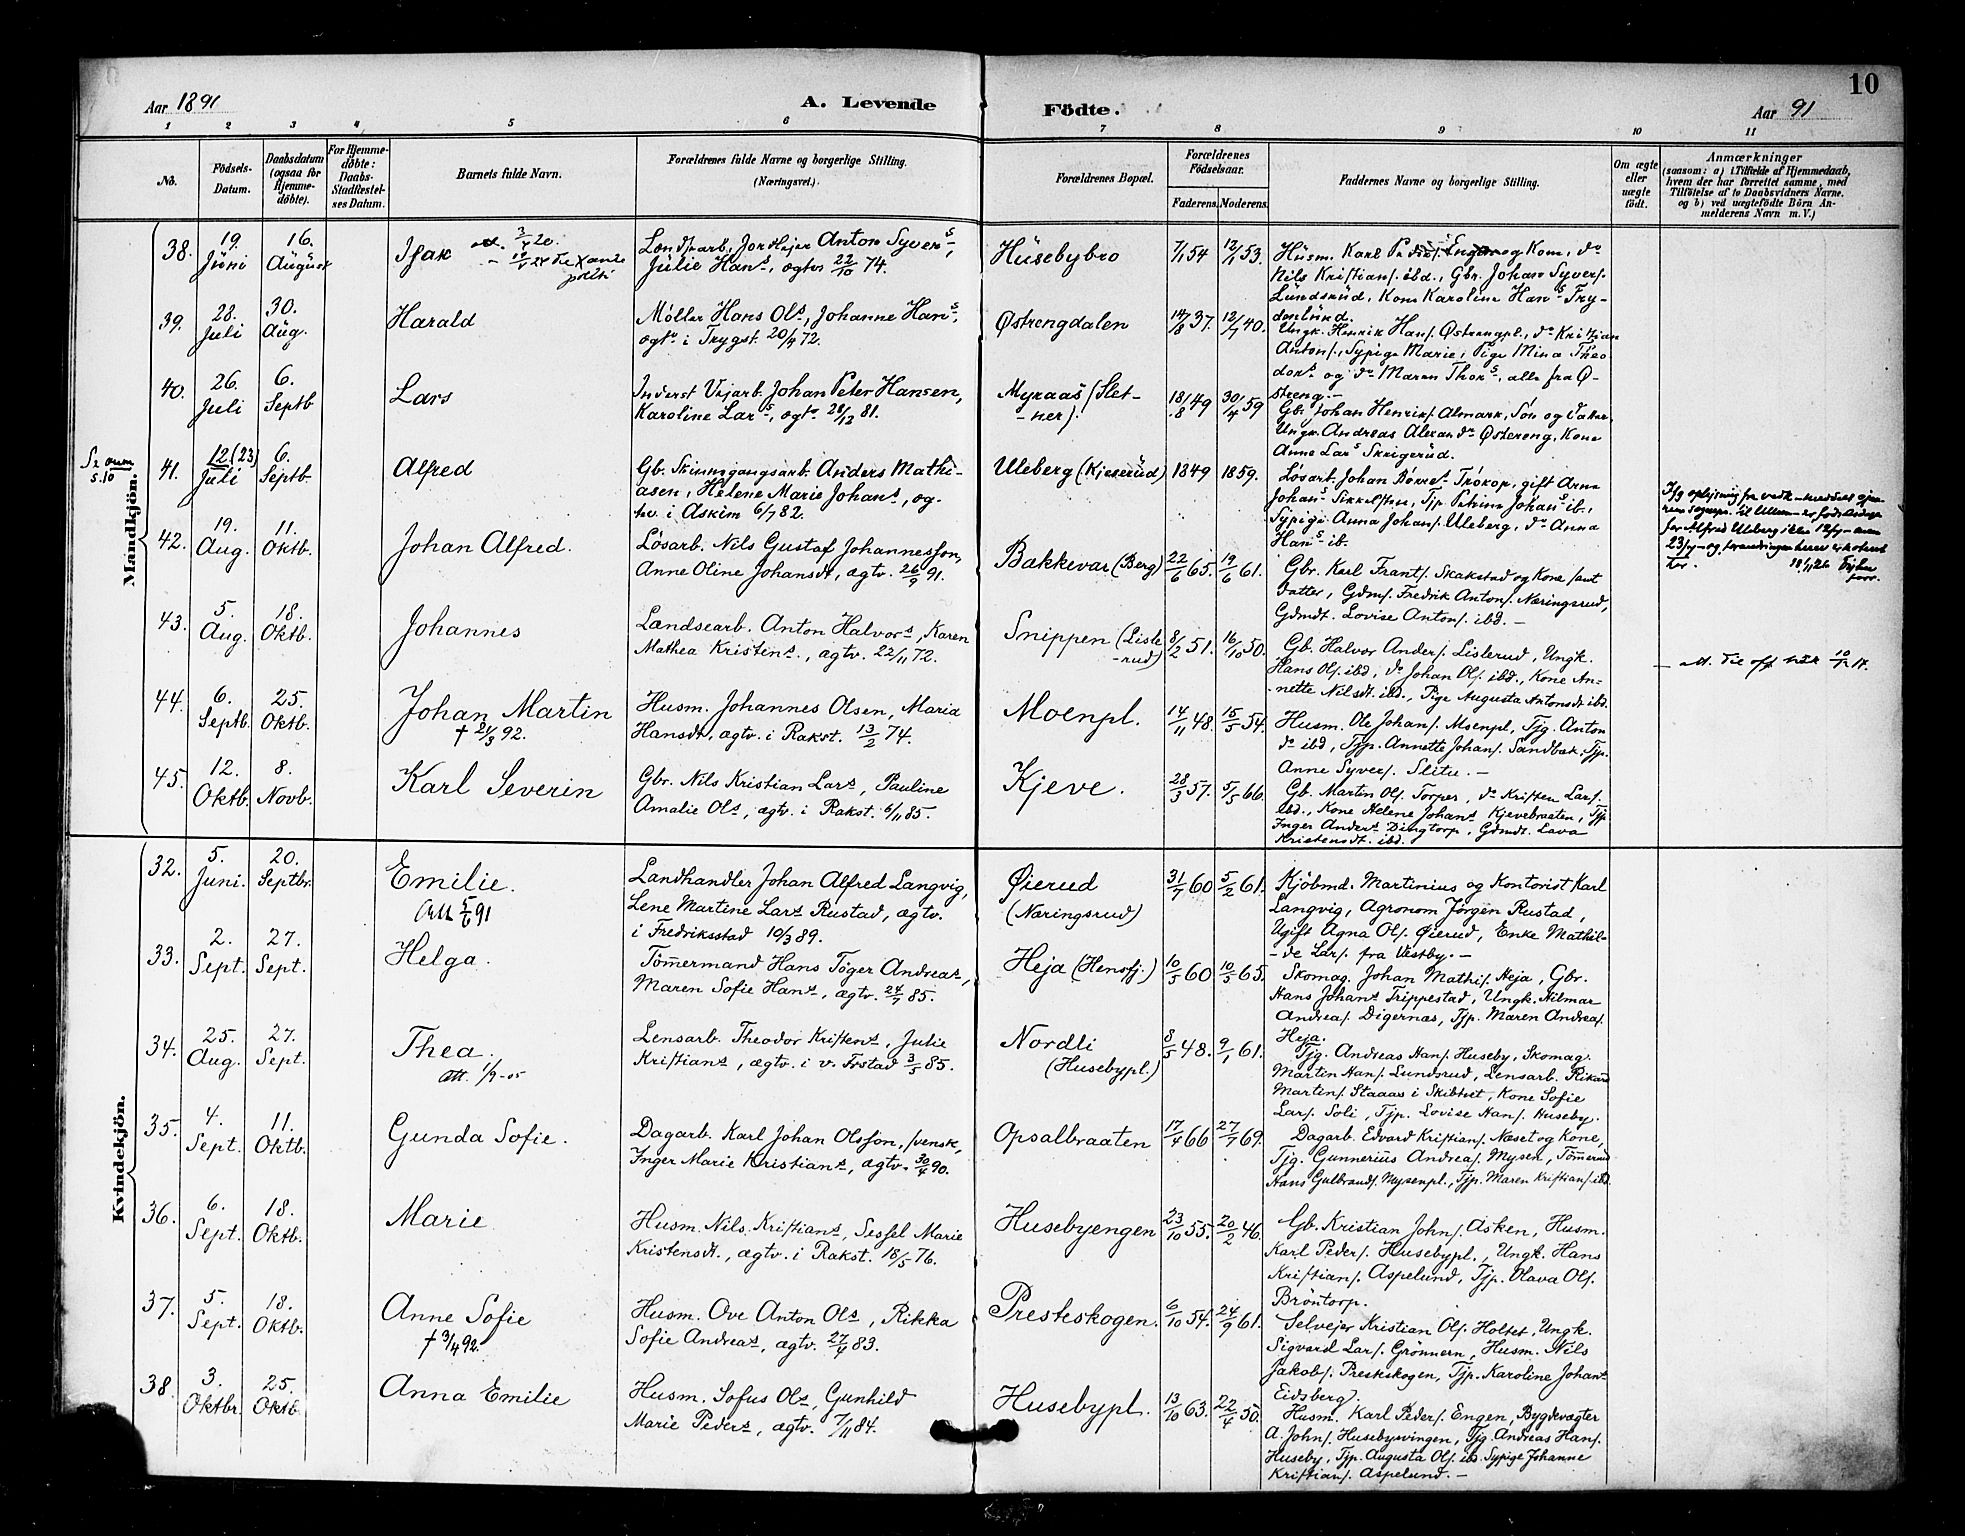 10
Aar 1891
A. Levende
Födte.
Aar 91
1 2 3 4 5 6 7 8 9 10 11
No.
Födsels-
Datum.
Daabsdatum
(ogsaa for
Hjemme-
döbte).
For Hjemme-
döbte:
Daabs-
Stadfæstel-
ses Datum.
Barnets fulde Navn.
Forældrenes fulde Navne og borgerlige Stilling.
(Næringsvei.)
Forældrenes Bopæl.
Forældrenes
Födselsaar.
Faderens. Moderens.
Faddernes Navne og borgerlige Stilling.
Om ægte
eller
uægte
födt.
Anmærkninger
(saasom: a) i Tilfælde af Hjemmedaab,
hvem der har forrettet samme, med
Tilföielse af to Daabsvidners Navne.
og b) ved uægtefödte Börn An-
melderens Navn m. V.)
Mandkjön.
38.
19.
Juni
16.
August
Isak
Julie Hans, ægtv 22/10 74.
Husebybro
7/1 54
12/11 53.
Nils Kristians. ibd., Gbr. Johan Syvers.
Lundsrud, Kone Karoline Hans Try-
donlund.
39.
28.
Juli
30.
Aug.
Harald
Møller Hans Ols, Johanne Hans,
ogtv i Trygst. 20/4 72.
Østrengdalen
14/8 37.
12/7 40.
Ungk. Henrik Hans. Østrengpl., do Kristian
Antons., Sypige Marie, Pige Mina Theo
dors og do Maren Thors, alle fra Ø-
streng.-
40.
26.
Juli
6.
Septb
Lars
Inderst Veiarb. Johan Peter Hansen,
Karoline Lars, ægtv 28/12 81.
Myraas (Slet-
-ner).
18/8 49
30/4 59
Gbr. Johan Henriks. Almark, Søn og Datter
Anne Lars Skrigerud.
41.
12 (23)
Juli
6.
Septb.
Alfred
Gb. Skinnegangsarb. Anders Mathi-
asen, Helene Marie Johans, æg-
tev i Askim 6/7 82.
Uleberg (Kjeserud)
1849
1859.
Sypige Anna Johans. Uleberg, do Anna
Hans ib.
42.
19.
Aug.
11.
Oktb.
Johan Alfred.
Løsarb. Nils Gustaf Johannesson,
Anne Oline Johansdt, ægtv. 26/9 91.
Bakkevar (Berg)
22/6 65.
19/6 61.
Gbr. Karl Frants. Skakstad og Kone samt
Datter, Gdms. Fredrik Antons. Næringsrud,
Gdmdt. Lovise Antons. ibd. -
43.
5.
Aug.
18.
Oktb.
Johannes
Landsearb. Anton Halvors, Karen
Mathea Kristens., ægtv. 22/11 72.
Snippen (Lisle
-rud)
8/2 51.
16/10 50.
Gb. Halvor Anders. Lislerud, Ungk.
Hans Ols. ibd, do Johan Ols. ibd., Kone An-
-nette Nilsdt. ibd., Pige Augusta Antonsdt ibd.
44.
6.
Septb.
25.
Oktb.
Johan Martin
† 21/3 92.
Husm. Johannes Olsen, Maria
Hansdt, ægtv. i Rakst. 13/2 74.
Moenpl.
14/11 48.
15/5 54.
Husm. Ole Johans. Moenpl, Tjg. Anton
do ibd, Tjp. Annette Johans. Sandbæk, Tjp.
Anne Syvers. Slitu. -
45.
12.
Oktb.
8.
Novb.
Karl Severin
Gbr. Nils Kristian Lars, Pauline
Amalie Ols, ægtv. i Rakst. 6/11 85.
Kjeve.
28/3 57.
5/5 66.
Gb. Martin Ols. Torper, do Kristen Lars.
ibd., Kone Helene Johans Kjevebraaten, Tjp
Inger Anders Dingtorp, Gdmdt. Lava
Kristensdt. ibd.
Kvindekjön.
32.
5.
Juni.
20.
Septbr.
Emilie.
Att 5/6 91
Landhandler Johan Alfred Langvig,
Lene Martine Lars Rustad, ægtv.
i Fredriksstad 10/3 89.
Øierud
(Næringsrud)
31/7 60
5/2 61.
Kjöbmd. Martinius og Kontorist Karl
Langvig, Agronom Jørgen Rustad,
Ugift Agna Ols. Øierud, Enke Mathil-
-de Lars. fra Vestby. -
33.
2.
Sept.
27.
Sept.
Helga.
Tömmermand Hans Töger Andreas,
Maren Sofie Hans, ægtv. 24/7 85.
Heja (Hensfj.)
10/5 60
10/5 65.
Skomag. Johan Mathis. Heja, Gbr.
Hans Johans Trippestad, Ungk. Hilmar
Andreas. Digernæs, Tjp. Maren Andreas.
Heja.
34.
25.
Aug.
27.
Sept.
Thea.
Att. 1/9-05
Lensarb. Theodor Kristens, Julie
Kristians, ægtv. i v. Frstad 3/5 85.
Nordli
(Husebypl.)
8/5 48.
9/1 61.
Tjg. Andreas Hans. Huseby, Skomag.
Martin Hans. Lundsrud, Lensarb. Rikard
Martins. Staaas i Skibtvet, Kone Sofie
Lars. Soli, Tjp. Lovise Hans. Huseby.
35.
4.
Sept.
11.
Oktb.
Gunda Sofie.
Dagarb. Karl Johan Olsson, svensk,
Inger Marie Kristians, ægtv. 30/4 90.
Opsalbraaten
17/4 66
27/7 69.
Dagarb. Edvard Kristians. Næset og Kone,
Tjg. Gunnerius Andreas. Mysen, Tömmerm
Hans Gulbrands. Mysenpl., Tjp. Maren Kristians. ibd.
36.
6.
Sept.
18.
Oktb.
Marie
Husm. Nils Kristians, Sessel Marie
Kristensdt., ægtv. i Rakst. 18/5 76.
Husebyengen
23/10 55.
20/2 46.
Gb. Kristian Johns. Asken, Husm.
Karl Peders. Husebypl., Ungk. Hans
Kristians. Aspelund, Tjp. Olava Ols.
Bröntorp.
37.
5.
Sept.
18.
Oktb.
Anne Sofie
† 3/4 92.
Husm. Ove Anton Ols, Rikka
Sofie Andreas, ægtv. 27/4 83.
Prestskogen.
6/10 54.
24/9 61.
Selvejer Kristian Ols. Holtet, Ungk.
Sigvard Lars. Grönnern, Husm. Nils
Jakobs. Prestskogen, Tjp. Karoline Johans
Eidsberg.
38.
3.
Oktbr.
25.
Oktb.
Anna Emilie
Husm. Sofus Ols, Gunhild
Marie Peders, ægtv. 7/11 84.
Husebypl.
13/10 63.
22/4 50.
Husm. Karl Peders. Engen, Bygdevægter
A. Johns. Husebysvingen, Tjg. Andreas Hans.
Huseby, Tjp. Augusta Ols. ibd. Sypige Johanne
Kristians. Aspelund. -